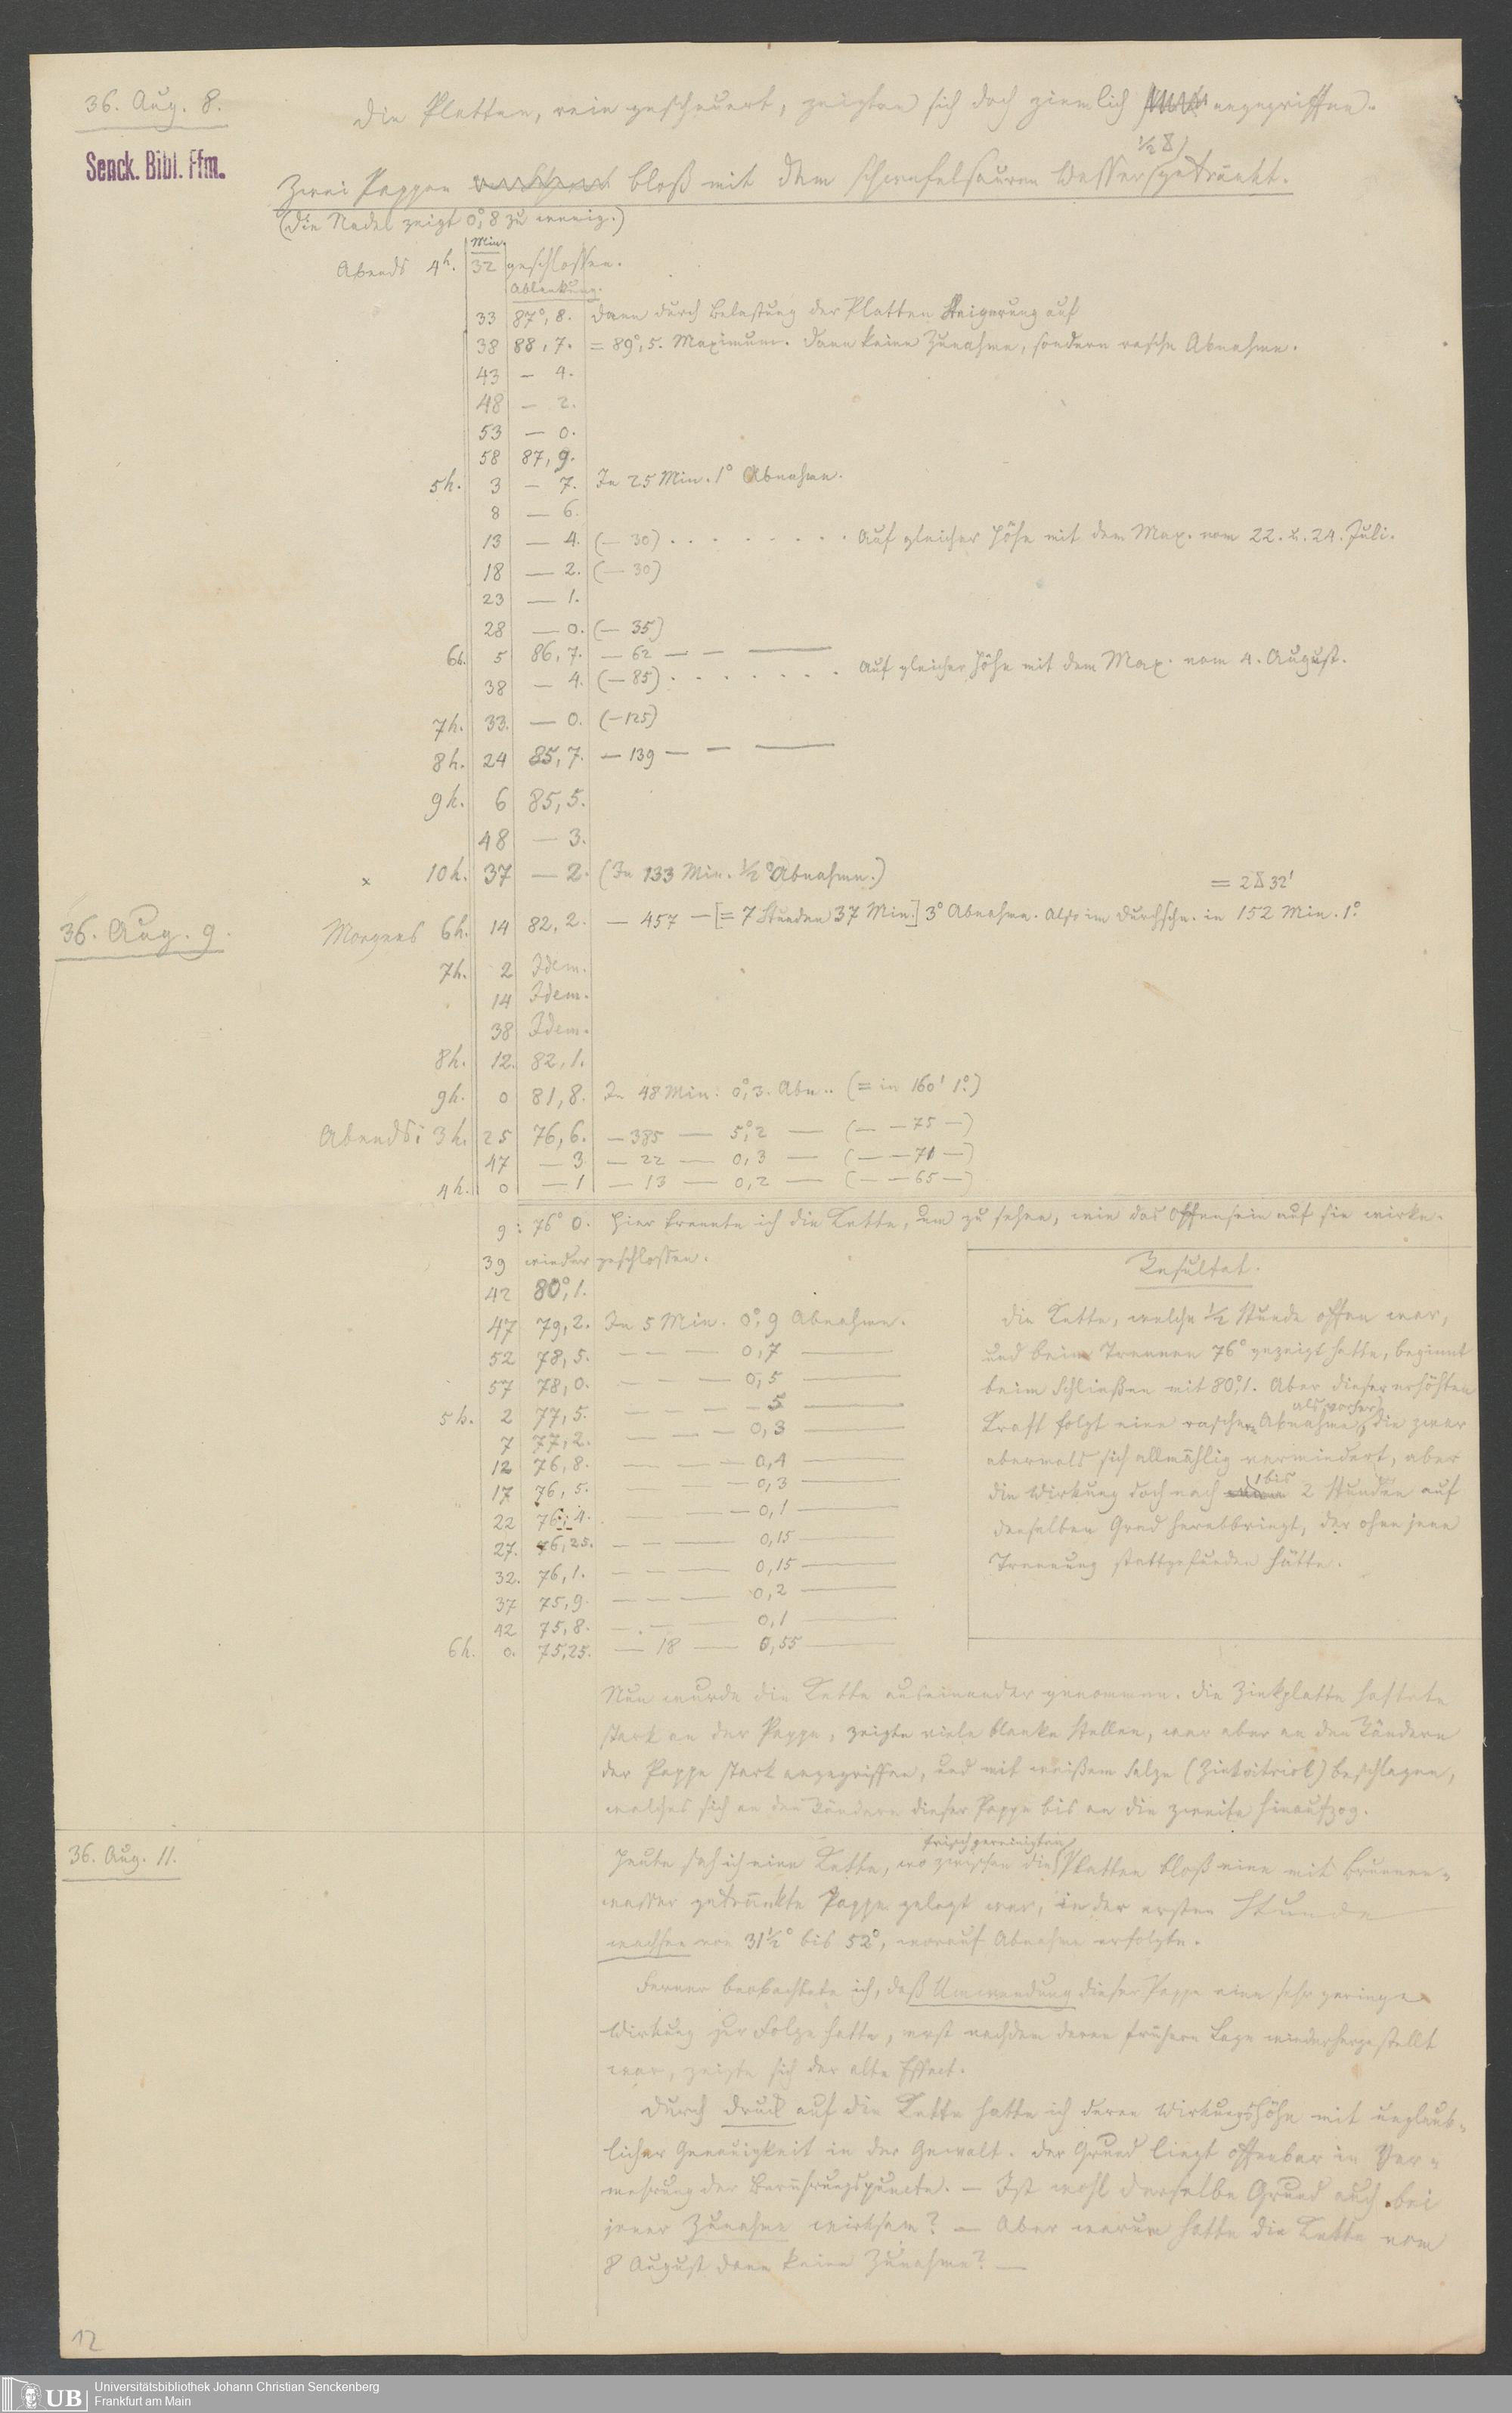 36. Aug. 8.
Die Platten, rein gescheuert, zeigten sich doch ziemlich angegriffen.
Senck. Bibl. Ffm.
½
Zwei Pappen bloß mit dem schwefelsauren Wasser getränkt.
(Die Nadel zeigt 0°,8 zu wenig.)
Min.
Abends 4h. 32 geschlossen.
Ablenkung.
33 87°,8. Dann durch Belastung der Platten Steigerung auf
38 88,7. = 89°,5. Maximum. Dann keine Zunahme, sondern rasche Abnahme.
43 — 4.
48 — 2.
53 — 0.
58 87,9.
5h. 3 — 7. In 25 Min. 1° Abnahme.
8 — 6.
13 — 4. (— 30) . . . . . . . . Auf gleicher Höhe mit dem Max. vom 22. u. 24. Juli.
18 — 2. (— 30)
23 — 1.
28 — 0. (— 35)
6h. 5 86,7. — 62 — — —
38 — 4. (— 85) . . . . . . . Auf gleicher Höhe mit dem Max. vom 4. August.
7h. 33. — 0. (—125)
8h. 24 85,7. — 139 — — —
9h. 6 85,5.
48 — 3.
× 10h. 37 — 2. (In 133 Min. ½° Abnahme.)
36. Aug. 9.
Morgens 6h. 14 82,2. — 457 — [= 7 Stunden 37 Min.] 3° Abnahme. Also im Durchschn. in 152 Min. 1°.
7h. 2 Idem.
14 Idem.
38 Idem.
8h. 12. 82,1.
9h. 0 81,8. In 48 Min: 0°,3. Abn.. (= in 160' 1°.)
Abends: 3h. 25 76,6. — 385 — 5°,2 — (— — 75 —)
47 — 3. — 22 — 0,3 — (— — 71 —)
4h. 0 — 1 — 13 — 0,2 — (— — 65 —)
9: 76° 0. Hier trennte ich die Kette, um zu sehen, wie das Offensein auf sie wirke.
39 wieder geschlossen.
42 80°,1.
47 79,2. In 5 Min. 0°,9 Abnahme.
52 78,5. — — — 0,7 —
57 78,0. — — — 0,5 —
5h. 2 77,5. — — — — 5 —
7 77,2. — — — 0,3 —
12 76,8. — — — 0,4 —
17 76,5. — — — 0,3 —
22 76,4. — — — 0,1 —
27. 76,25. — — — 0,15 —
32. 76,1. — — — 0,15 —
37 75,9. — — — 0,2 —
42 75,8. — . — — 0,1 —
6h. 0. 75,25. — 18 — 0,55 —
Resultat.
Die Kette, welche ½ Stunde offen war,
und beim Trennen 76° gezeigt hatte, beginnt
beim Schließen mit 80°,1. Aber dieser erhöhten
als vorher
Kraft folgt eine raschere Abnahme, die zwar
abermals sich allmählig vermindert, aber
1 bis
die Wirkung doch nach 2 Stunden auf
denselben Grad herabbringt, der ohne jene
Trennung stattgefunden hätte.
Nun wurde die Kette auseinander genommen. Die Zinkplatte haftete
stark an der Pappe, zeigte viele blanke Stellen, war aber an den Rändern
der Pappe stark angegriffen, und mit weißem Salze (Zinkvitriol) beschlagen,
welches sich an den Rändern dieser Pappe bis an die zweite hinaufzog.
36. Aug. 11.
frisch gereinigten
Heute sah ich eine Kette, wo zwischen die Platten bloß eine mit Brunnen-
wasser getränkte Pappe gelegt war, in der ersten Stunde
wachsen von 31½° bis 52°, worauf Abnahme erfolgte.
Ferner beobachtete ich, daß Umwendung dieser Pappe eine sehr geringe
Wirkung zur Folge hatte, erst nachdem deren frühere Lage wiederhergestellt
war, zeigte sich der alte Effect.
Durch Druck auf die Kette hatte ich deren Wirkungshöhe mit unglaub-
licher Genauigkeit in der Gewalt. Der Grund liegt offenbar in Ver-
mehrung der Berührungspuncte. — Ist wohl derselbe Grund auch bei
jener Zunahme wirksam? — Aber warum hatte die Kette vom
8 August dann keine Zunahme? —
12
UB
Universitätsbibliothek Johann Christian Senckenberg
Frankfurt am Main